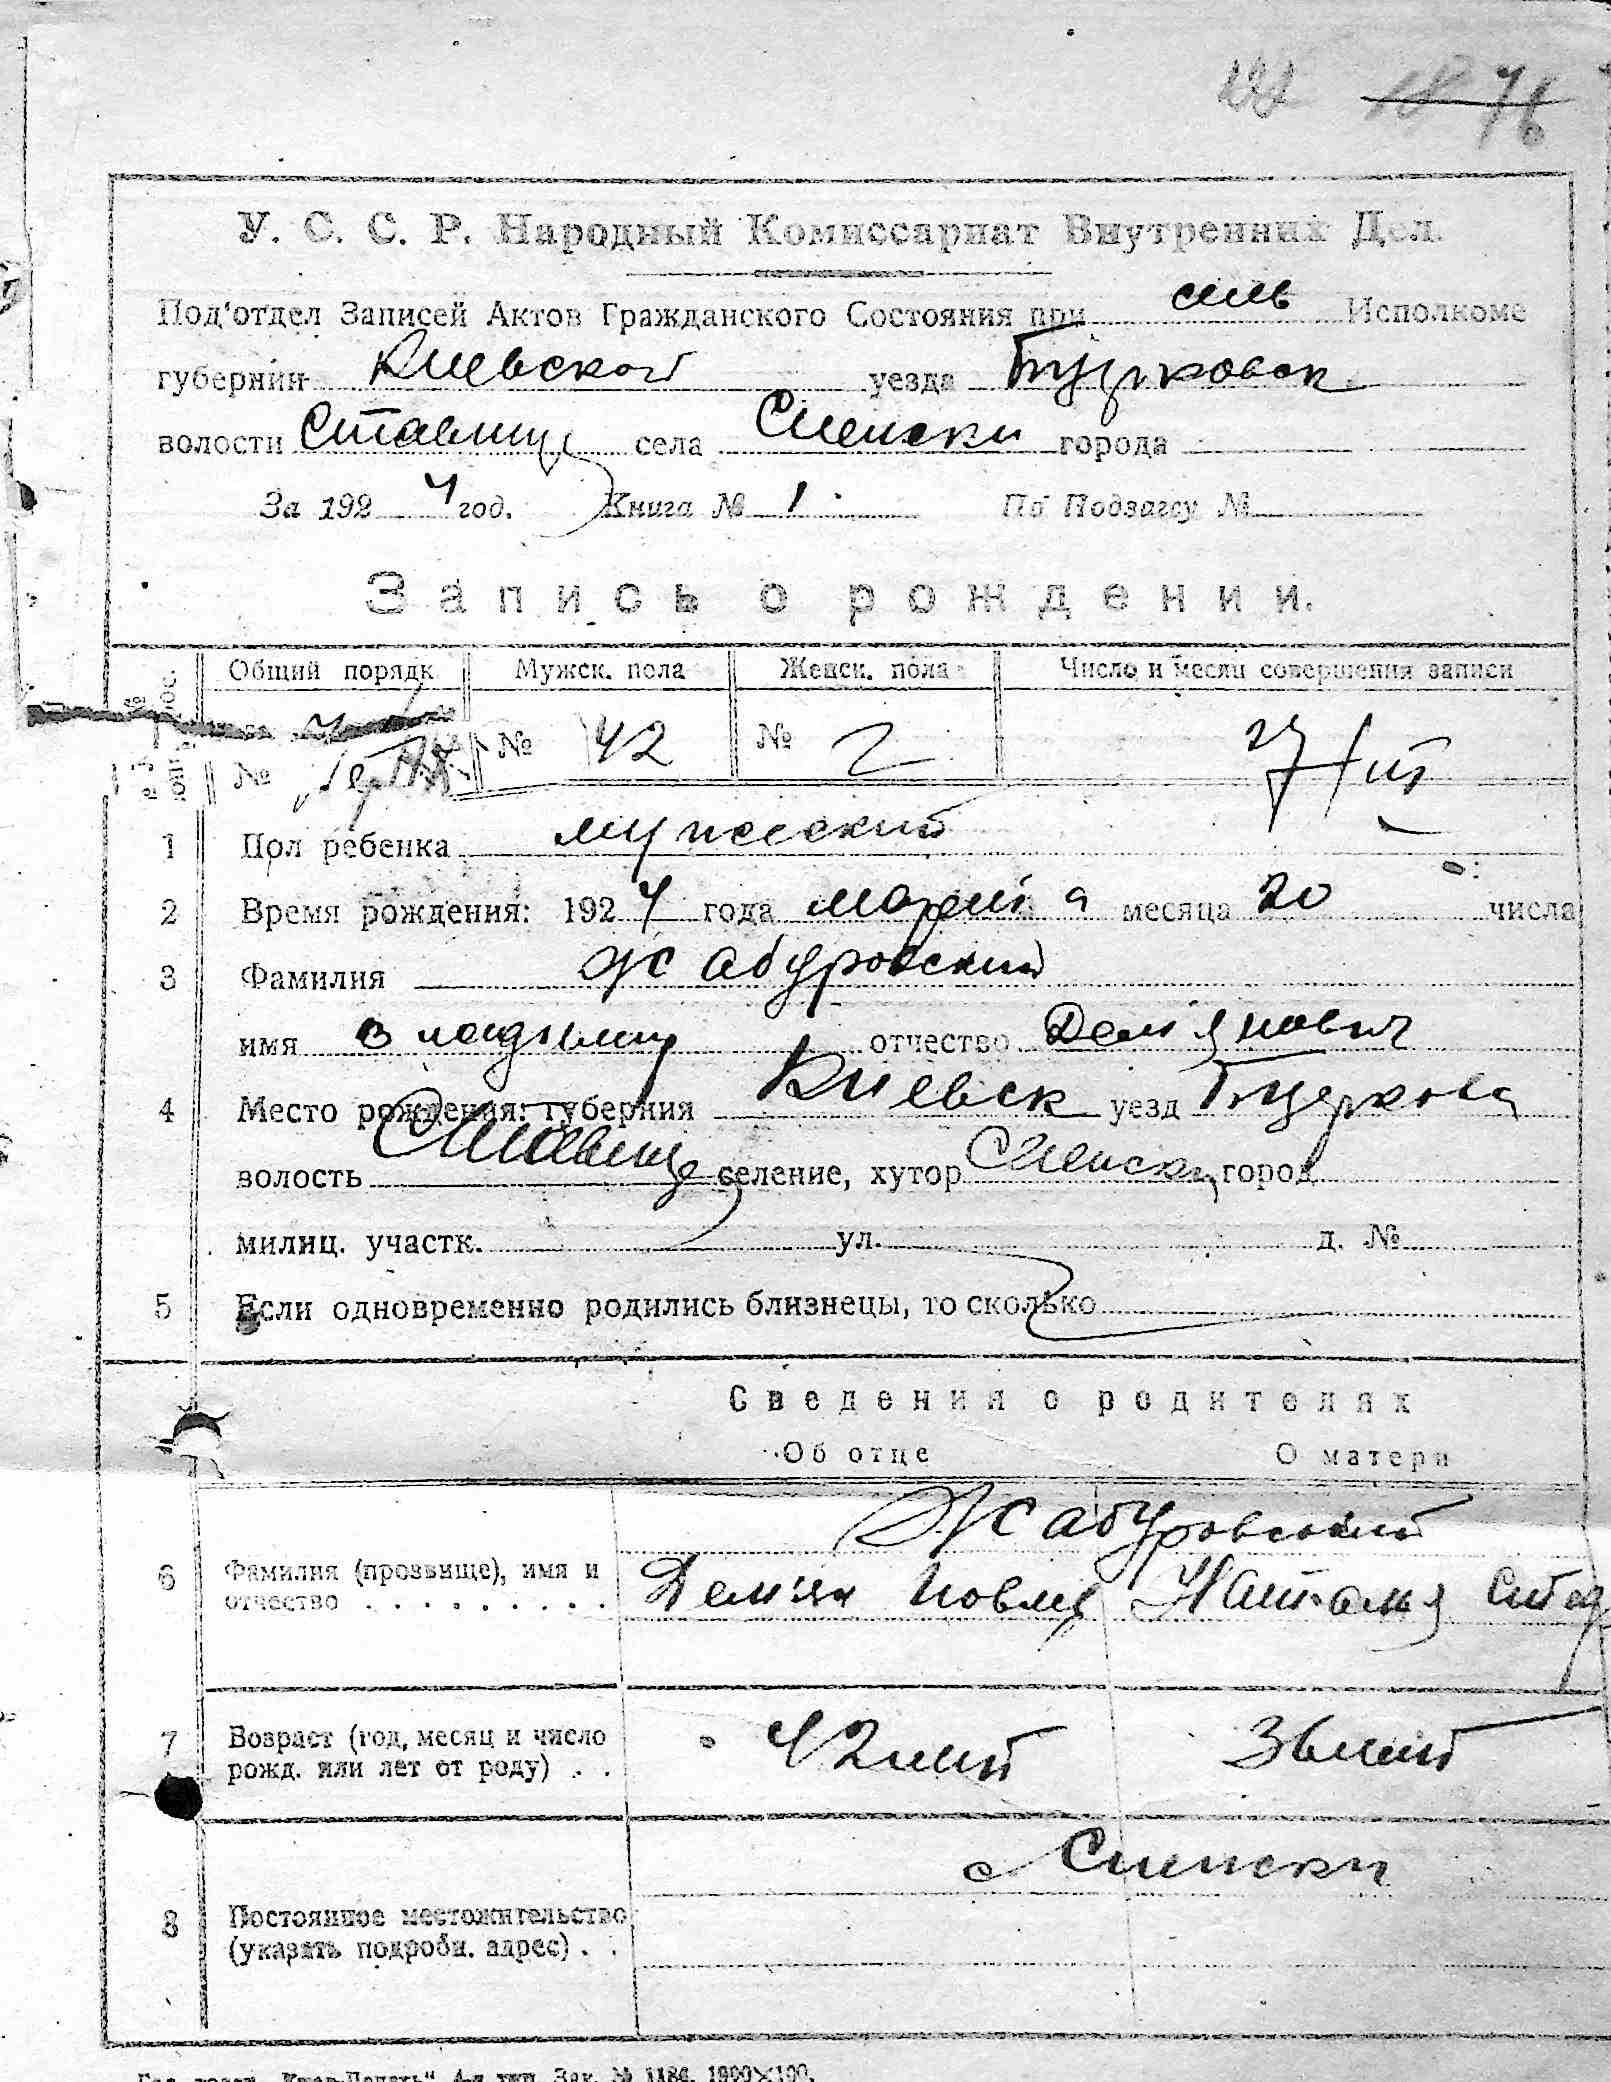 76
У. С. С. Р. Народный Комиссариат Внутренних Дел.
Под'отдел Записей Актов Гражданского Состояния при сель Исполкоме
губернии Киевской уезда Бцерковск
волости Ставищ села Снежски города
За 1924 год. Книга № 1 По Подзагсу №
Запись о рождении.
Общий порядк Мужск. пола Женск. пола Число и месяц совершения записи
№ № 42 № 27/III
1 Пол ребенка мужеский
2 Время рождения: 1924 года марта месяца 20 числа
3 Фамилия Жабуровский
имя Владымир отчество Дем'янович
4 Место рождения: губерния Киевск уезд Бцеркова
волость Ставище селение, хутор город
милиц. участк. ул. д. №
5 Если одновременно родились близнецы, то сколько
Сведения о родителях
Об отце О матери
Жабуровский
6 Фамилия (прозвище), имя и
отчество . . . . . . . . . Дем'ян Повл Наталя
7 Возраст (год, месяц и число
рожд. или лет от роду) . . 42 лит 36 лит
с
8 Постоянное местожительство
(указать подробн. адрес) . .
4-я тип. Зак. № 1186. 1000×100.